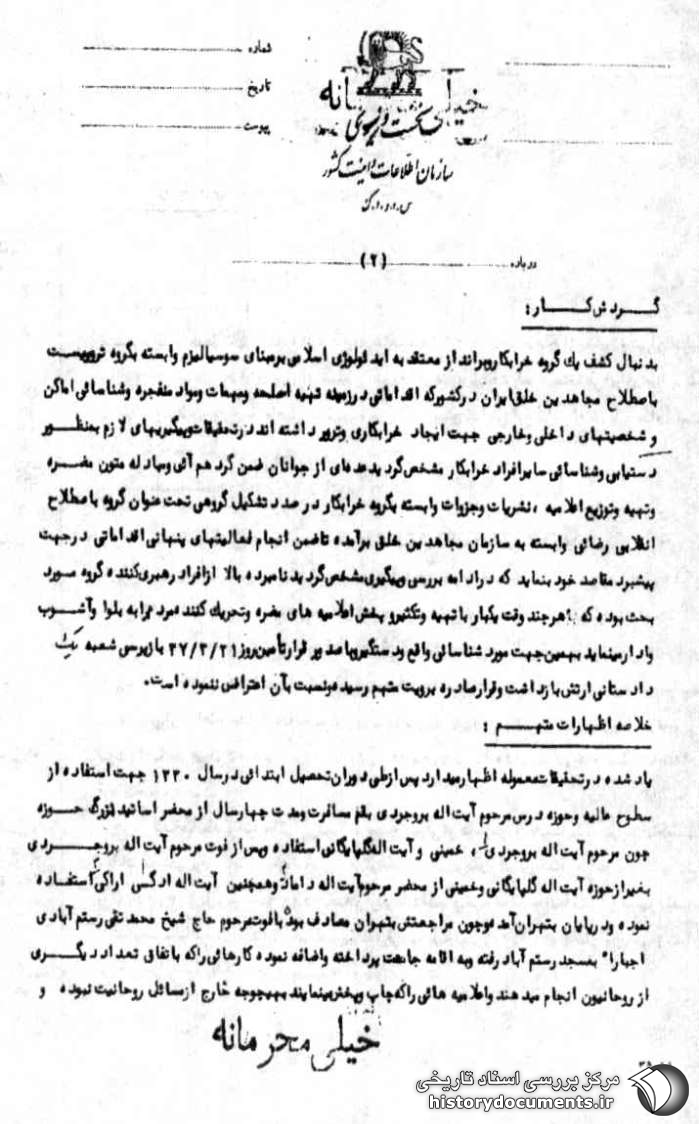 شماره
تاریخ
پیوست
خیلی محرمانه
نخست وزیری
سازمان اطلاعات و امنیت کشور
س.ا.و.ا.ک
درباره (۲)
گردش کار :
بدنبال کشف یك گروه خرابکار و برانداز معتقد به ایدئولوژی اسلامی برمبنای سوسیالیزم وابسته بگروه تروریست
باصطلاح مجاهدین خلق ایران درکشورکه اقداماتی درزمینه تهیه اسلحه ومهمات ومواد منفجره وشناسائی اماکن
و شخصیتهای داخلی وخارجی جهت ایجاد خرابکاری وترور داشته اند درتحقیقات وپیگیریهای لازم بمنظور
دستیابی وشناسائی سایرافراد خرابکار مشخص گردید عده‌ای از جوانان ضمن گرد هم آئی ومبادله متون مضره
وتهیه وتوزیع اعلامیه ، نشریات وجزوات وابسته بگروه خرابکار درصدد تشکیل گروهی تحت عنوان گروه باصطلاح
انقلابی رضائی وابسته به سازمان مجاهدین خلق برآمده تاضمن انجام فعالیتهای پنهانی اقداماتی درجهت
پیشبرد مقاصد خود بنماید که درادامه بررسی وپیگیری مشخص گردید نامبرده بالا ازافراد رهبری کننده گروه مورد
بحث بوده که هرچند وقت یکبار با تهیه وتکثیرو پخش اعلامیه های مضره وتحریك کننده مردم رابه بلوا وآشوب
وادارمینماید بهمین جهت مورد شناسائی واقع ودستگیروباصدور قرارتأمین روز ۳۷/۳/۲۱ بازپرسی شعبه یک
دادستانی ارتش بازداشت وقرارصادره برویت متهم رسیده ونسبت بآن اعتراض ننموده است.
خلاصه اظهارات متهم :
یاد شده درتحقیقات معموله اظهارمیدارد پس ازطی دوران تحصیل ابتدائی درسال ۱۳۳۰ جهت استفاده از
سطوح عالیه وحوزه درس مرحوم آیت اله بروجردی بقم مسافرت ومدت چهارسال از محضر اساتید بزرگ حوزه
چون مرحوم آیت اله بروجردی ، خمینی و آیت اله گلپایگانی استفاده وپس از فوت مرحوم آیت اله بروجردی
بغیرازحوزه آیت اله گلپایگانی وخمینی از محضر مرحوم آیت اله داماد وهمچنین آیت اله اراکی استفاده
نموده ودرپایان بتهران آمده وچون مراجعتش بتهران مصادف بود بافوت مرحوم حاج شیخ محمد تقی رستم آبادی
اجبارا" بمسجد رستم آباد رفته وبه اقامه جماعت پرداخته واضافه نموده کارهائی راکه باتفاق تعداد دیگری
از روحانیون انجام میدهند واعلامیه هائی راکه چاپ وپخش مینمایند بهیچوجه خارج ازمسائل روحانیت نبوده و
خیلی محرمانه
مرکز بررسی اسناد تاریخی
historydocuments.ir